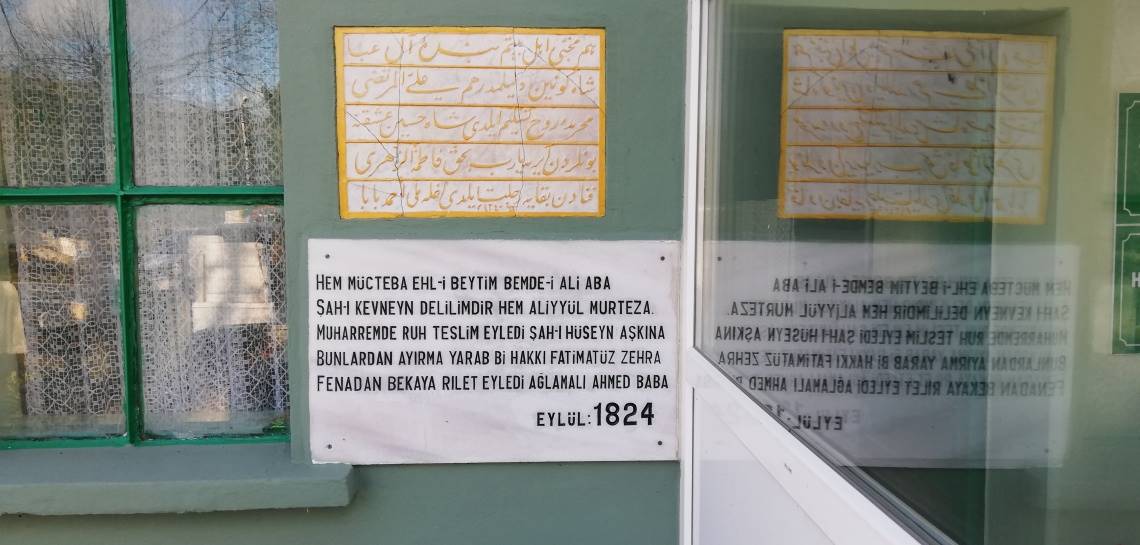 هم مجتبی اهل بیتم بندهٔ آل عبا
شاه کونین دلیلمدر هم علی المرتضی
محرمده روح تسلیم ایلدی شاه حسین عشقنه
بونلردن آیرمه یارب بحق فاطمة الزهری
فنادن بقایه رحلت ایلدی احمد بابا
HEM MÜCTEBA EHL-İ BEYTİM BEMDE-İ ALİ ABA
ŞAH-I KEVNEYN DELİLİMDİR HEM ALİYYÜL MURTEZA.
MUHARREMDE RUH TESLİM EYLEDİ ŞAH-I HÜSEYN AŞKINA
BUNLARDAN AYIRMA YARAB Bİ HAKKI FATIMATÜZ ZEHRA
FENADAN BEKAYA RILET EYLEDİ AĞLAMALI AHMED BABA
EYLÜL: 1824